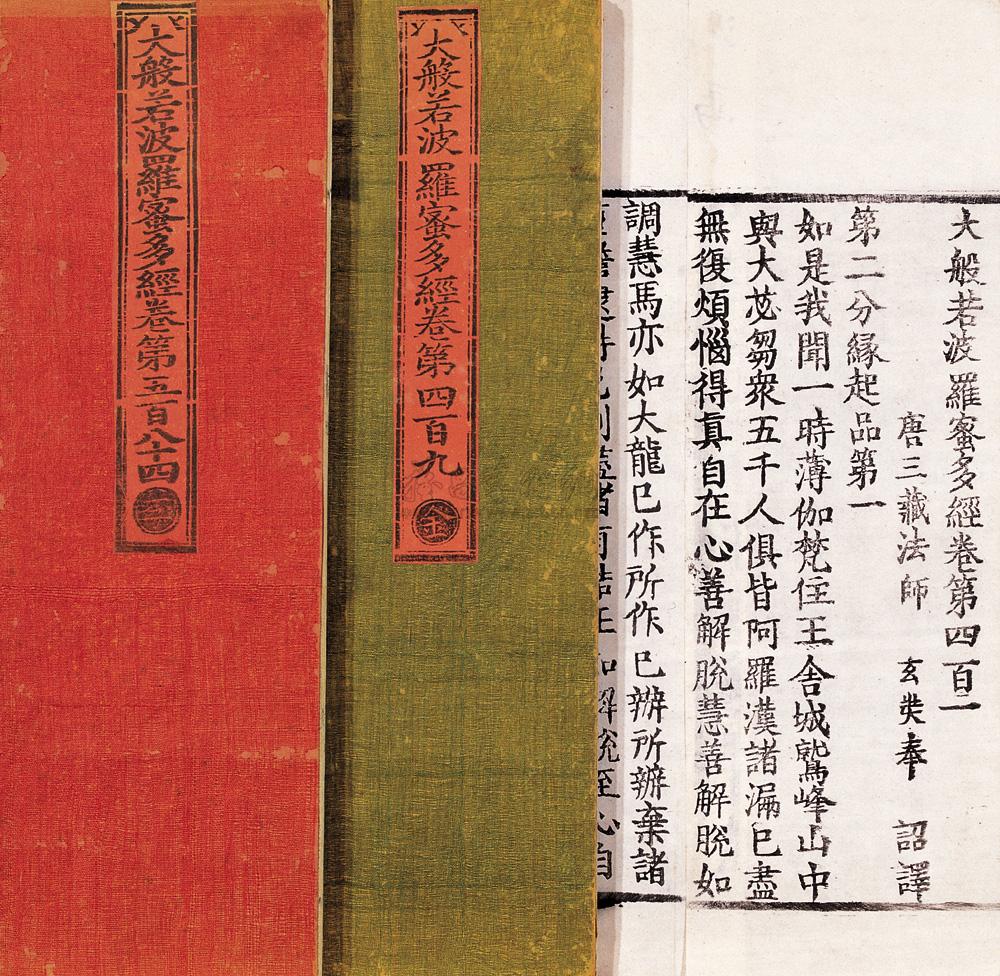 大般若波羅蜜多經卷第五百八十四
大般若波羅蜜多經卷第四百九
金
大般若波羅蜜多經卷第四百二
唐三藏法師 玄奘奉 詔譯
第二分緣起品第一
如是我聞一時薄伽梵住王舍城鷲峰山中
與大苾芻衆五千人俱皆阿羅漢諸漏已盡
無復煩惱得真自在心善解脫慧善解脫如
調慧馬亦如大龍已作所作已辦所辦棄諸